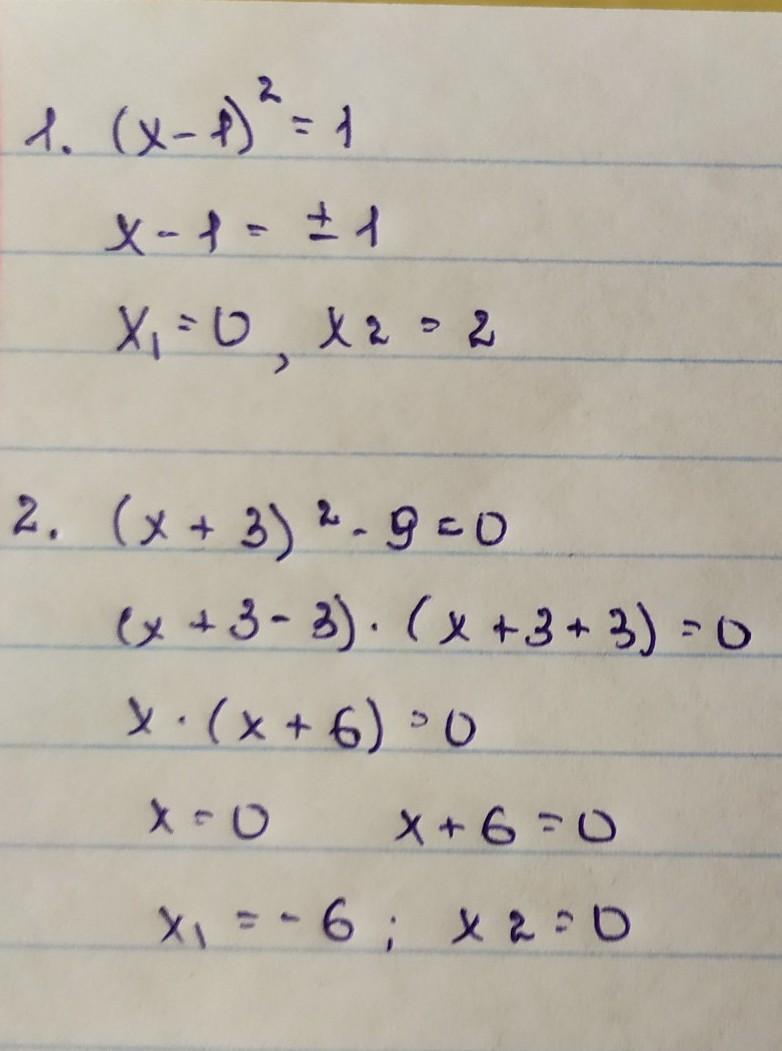 1. (x-1)² = 1
x-1 = ±1
x₁ = 0, x2 = 2
2. (x + 3)² - 9 = 0
(x + 3 - 3) · (x + 3 + 3) = 0
x · (x + 6) = 0
x = 0 x + 6 = 0
x₁ = -6; x2 = 0